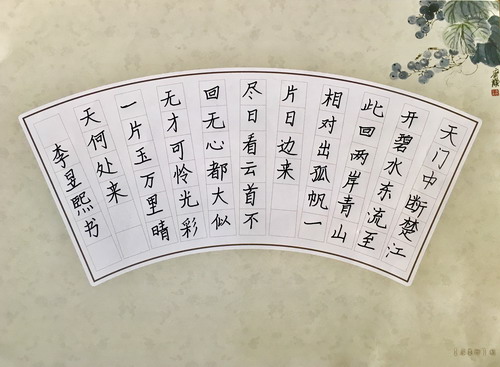 天门中断楚江
开碧水东流至
此回两岸青山
相对出孤帆一
片日边来
尽日看云首不
回无心都大似
无才可怜光彩
一片玉万里晴
天何处来
李昱熙书